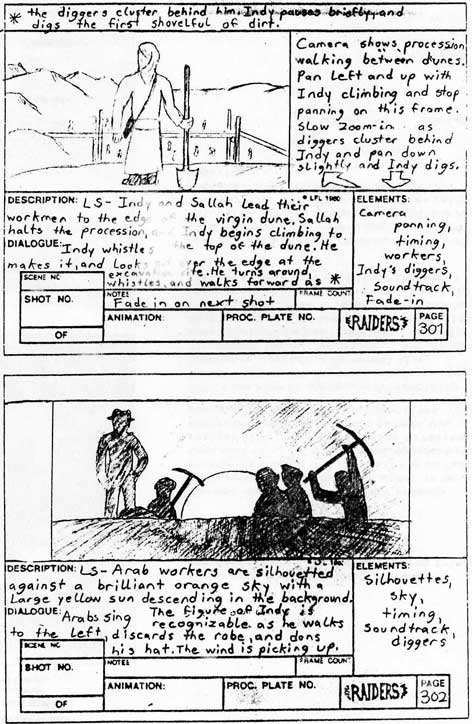 * the diggers cluster behind him. Indy pauses briefly, and
digs the first shovelful of dirt.
Camera shows procession
walking between dunes.
Pan Left and up with
Indy climbing and stop
panning on this frame.
Slow Zoom-in as
diggers cluster behind
Indy and pan down
slightly and Indy digs.
DESCRIPTION: LS- Indy and Sallah lead their
© LFL 1980
workmen to the edge of the virgin dune. Sallah
halts the procession, and Indy begins climbing to
DIALOGUE: Indy whistles the top of the dune. He
makes it, and looks over the edge at the
excavation site. He turns around,
whistles, and walks forward as *
ELEMENTS:
Camera
panning,
timing,
workers,
Indy's diggers,
Soundtrack,
Fade-in
SCENE NO.
SHOT NO.
OF
NOTES
Fade in on next shot
FRAME COUNT
ANIMATION:
PROC. PLATE NO.
RAIDERS
PAGE
301
DESCRIPTION: LS- Arab workers are silhouetted
against a brilliant orange sky with a
Large yellow sun descending in the background.
DIALOGUE: Arabs sing The figure of Indy is
recognizable as he walks
to the left, discards the robe, and dons
his hat. The wind is picking up.
ELEMENTS:
Silhouettes,
sky,
timing,
Soundtrack,
diggers
SCENE NO.
SHOT NO.
OF
NOTES
FRAME COUNT
ANIMATION:
PROC. PLATE NO.
RAIDERS
PAGE
302